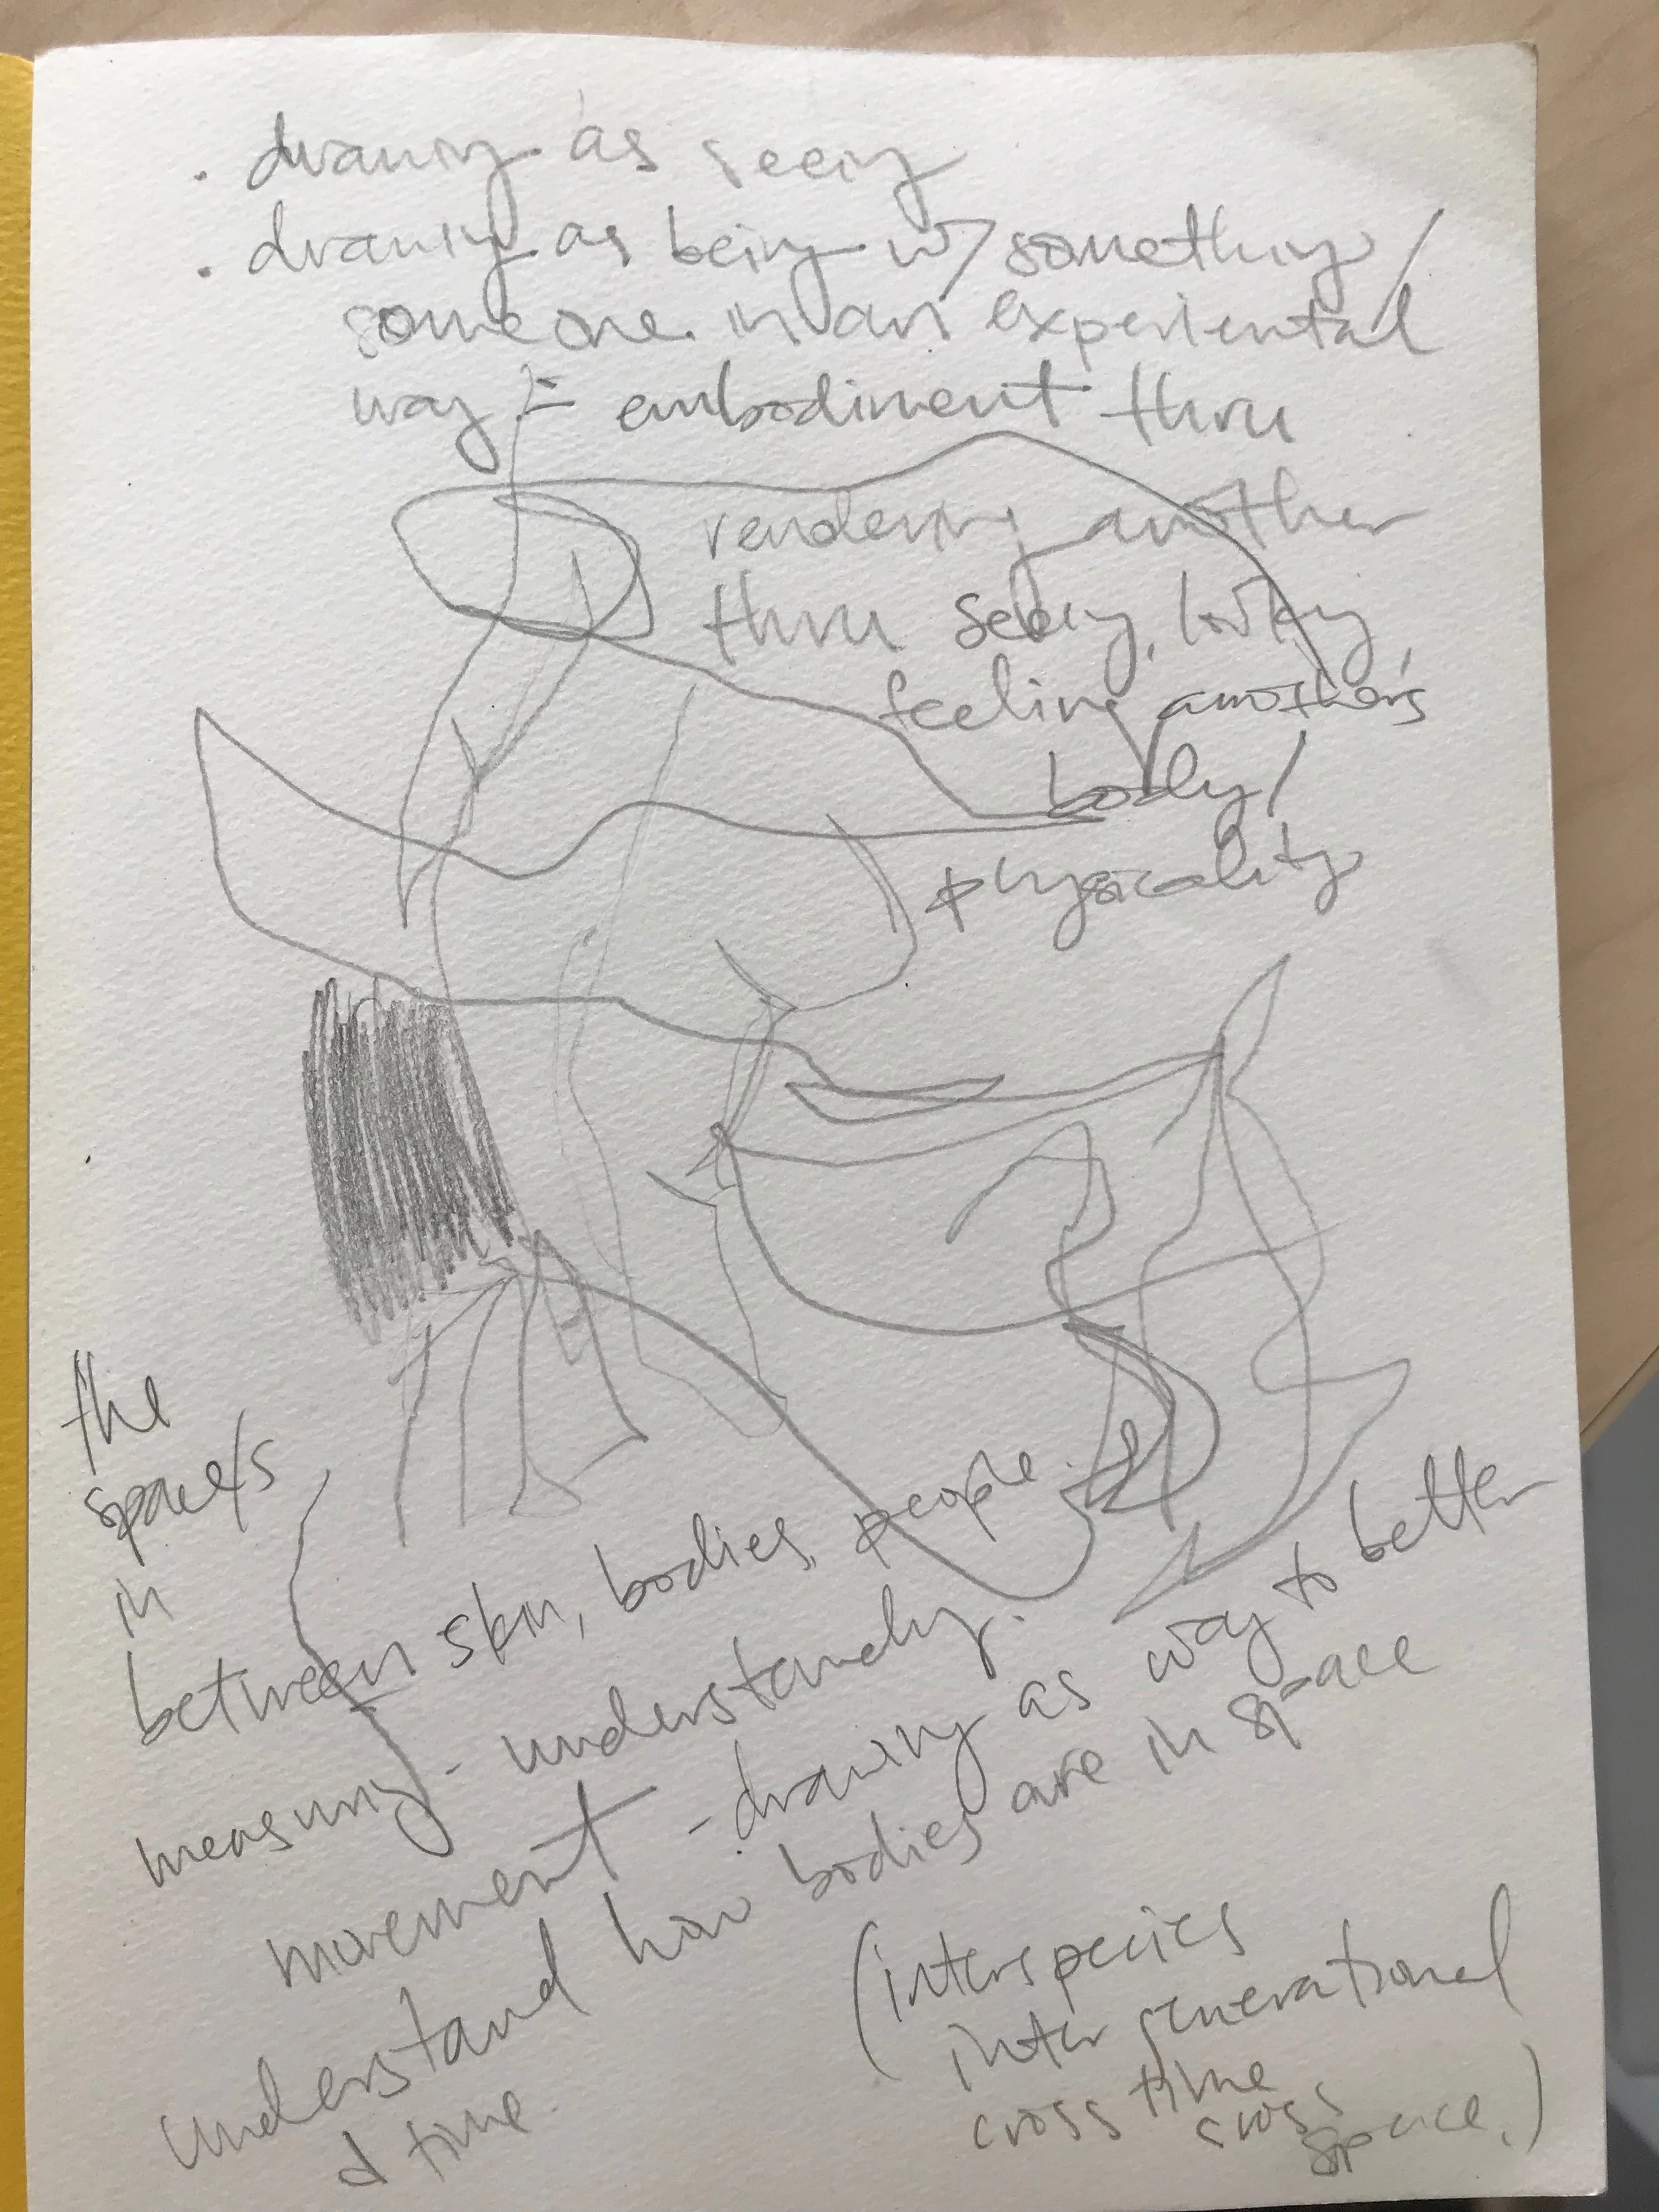 . drawing as seeing
. drawing as being w/ something/
someone in an experiential
way = embodiment thru
rendering another
thru seeing, looking,
feeling another's
body/
physicality
the
space/s
in
between skin, bodies, people.
measuring - understanding.
movement - drawing as way to better
understand how bodies are in space
& time.
(interspecies
intergenerational
cross time
cross
space.)